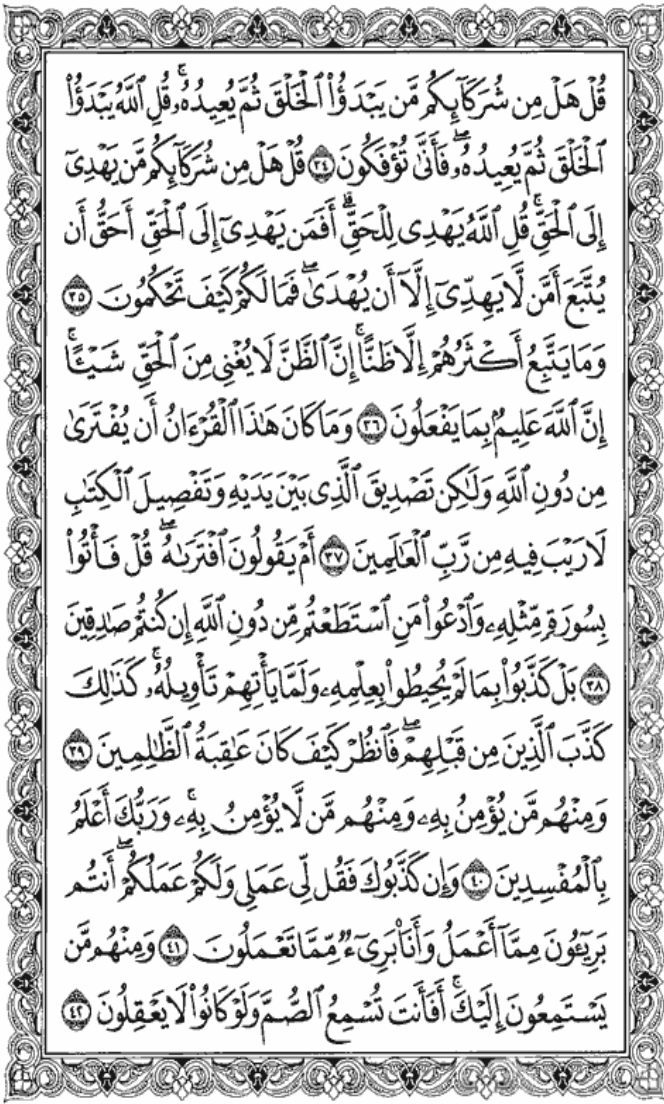 قُلْ هَلْ مِن شُرَكَآئِكُم مَّن يَبْدَؤُا۟ ٱلْخَلْقَ ثُمَّ يُعِيدُهُۥ ۚ قُلِ ٱللَّهُ يَبْدَؤُا۟
ٱلْخَلْقَ ثُمَّ يُعِيدُهُۥ ۖ فَأَنَّىٰ تُؤْفَكُونَ ٣٤ قُلْ هَلْ مِن شُرَكَآئِكُم مَّن يَهْدِىٓ
إِلَى ٱلْحَقِّ ۚ قُلِ ٱللَّهُ يَهْدِى لِلْحَقِّ ۗ أَفَمَن يَهْدِىٓ إِلَى ٱلْحَقِّ أَحَقُّ أَن
يُتَّبَعَ أَمَّن لَّا يَهِدِّىٓ إِلَّآ أَن يُهْدَىٰ ۖ فَمَا لَكُمْ كَيْفَ تَحْكُمُونَ ٣٥
وَمَا يَتَّبِعُ أَكْثَرُهُمْ إِلَّا ظَنًّا ۚ إِنَّ ٱلظَّنَّ لَا يُغْنِى مِنَ ٱلْحَقِّ شَيْـًٔا ۚ
إِنَّ ٱللَّهَ عَلِيمٌۢ بِمَا يَفْعَلُونَ ٣٦ وَمَا كَانَ هَـٰذَا ٱلْقُرْءَانُ أَن يُفْتَرَىٰ
مِن دُونِ ٱللَّهِ وَلَـٰكِن تَصْدِيقَ ٱلَّذِى بَيْنَ يَدَيْهِ وَتَفْصِيلَ ٱلْكِتَـٰبِ
لَا رَيْبَ فِيهِ مِن رَّبِّ ٱلْعَـٰلَمِينَ ٣٧ أَمْ يَقُولُونَ ٱفْتَرَىٰهُ ۖ قُلْ فَأْتُوا۟
بِسُورَةٍ مِّثْلِهِۦ وَٱدْعُوا۟ مَنِ ٱسْتَطَعْتُم مِّن دُونِ ٱللَّهِ إِن كُنتُمْ صَـٰدِقِينَ
٣٨ بَلْ كَذَّبُوا۟ بِمَا لَمْ يُحِيطُوا۟ بِعِلْمِهِۦ وَلَمَّا يَأْتِهِمْ تَأْوِيلُهُۥ ۚ كَذَٰلِكَ
كَذَّبَ ٱلَّذِينَ مِن قَبْلِهِمْ ۖ فَٱنظُرْ كَيْفَ كَانَ عَـٰقِبَةُ ٱلظَّـٰلِمِينَ ٣٩
وَمِنْهُم مَّن يُؤْمِنُ بِهِۦ وَمِنْهُم مَّن لَّا يُؤْمِنُ بِهِۦ ۚ وَرَبُّكَ أَعْلَمُ
بِٱلْمُفْسِدِينَ ٤٠ وَإِن كَذَّبُوكَ فَقُل لِّى عَمَلِى وَلَكُمْ عَمَلُكُمْ ۖ أَنتُم
بَرِيٓـُٔونَ مِمَّآ أَعْمَلُ وَأَنَا۠ بَرِىٓءٌ مِّمَّا تَعْمَلُونَ ٤١ وَمِنْهُم مَّن
يَسْتَمِعُونَ إِلَيْكَ ۚ أَفَأَنتَ تُسْمِعُ ٱلصُّمَّ وَلَوْ كَانُوا۟ لَا يَعْقِلُونَ ٤٢